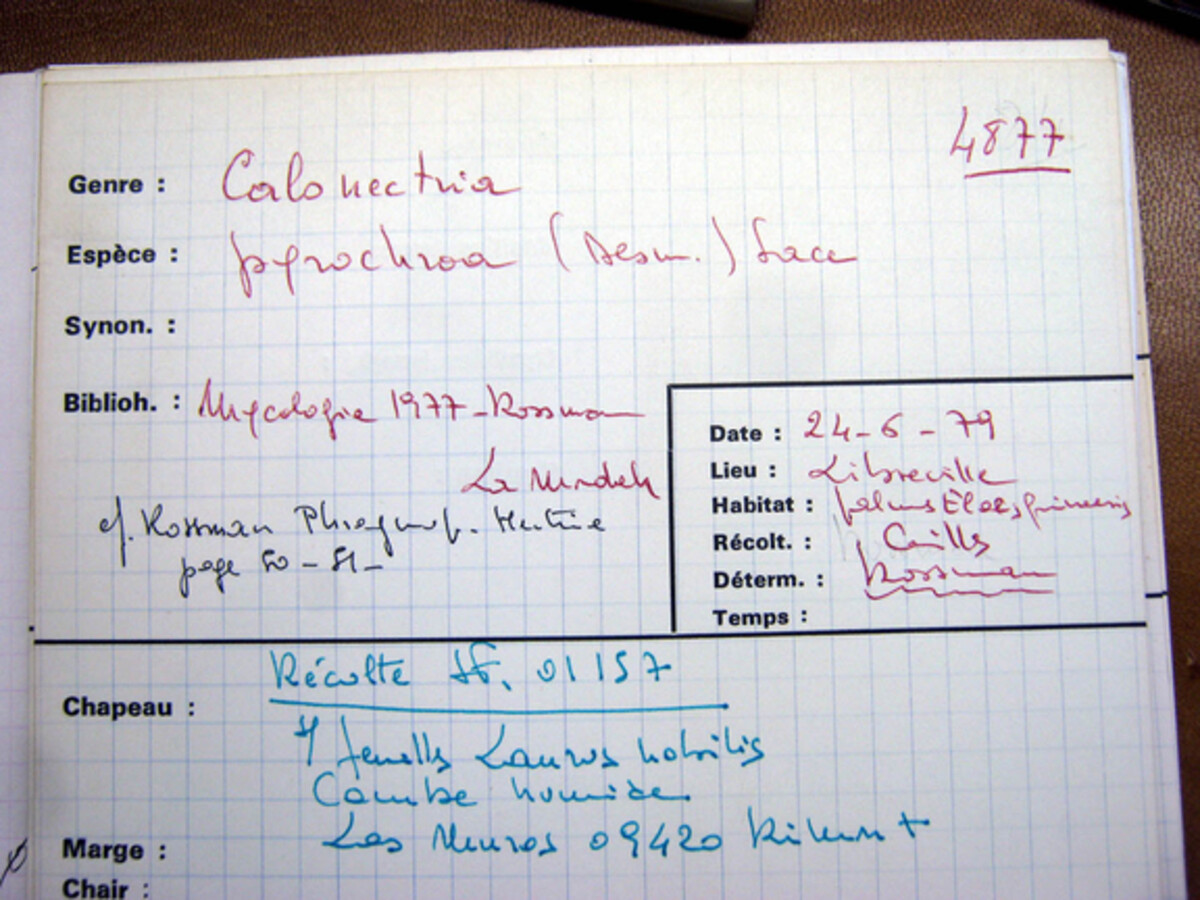 4877
Genre : Calonectria
Espèce : pyrochroa (Desm.) Sacc
Synon. :
Biblioh. : Mycologia 1977 - Rossman
cf. Rossman Phragmop. Nectrie
page 50 - 51 -
Date : 24-6-79
Lieu : Libreville
Habitat :
Récolt. :
Déterm. : Rossman
Temps :
Récolte JF. 01157
Chapeau :
s/ feuilles Laurus nobilis
Combe humide
Las Muros 09420 Rimont
Marge :
Chair :